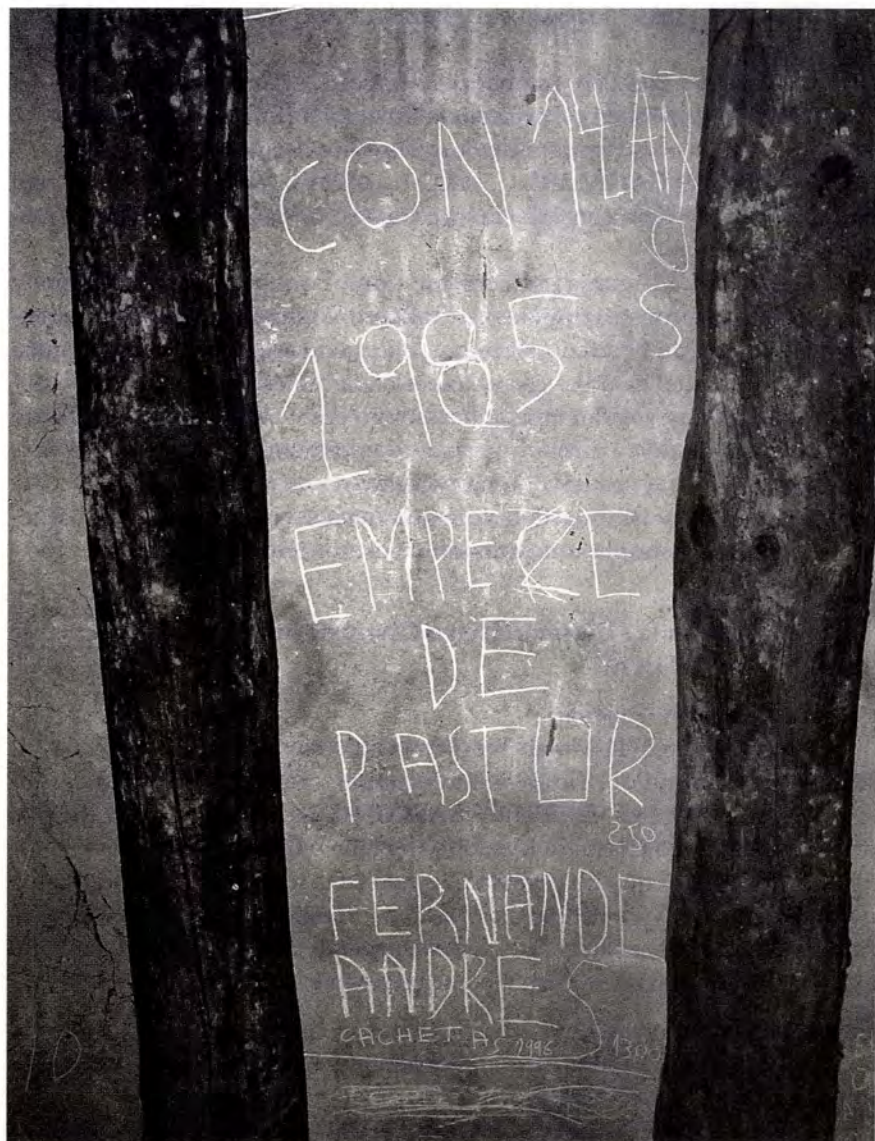 CON 14 AÑOS
1985
EMPECE
DE
PASTOR
250
FERNANDE
ANDRES
CACHETAS 1996
10